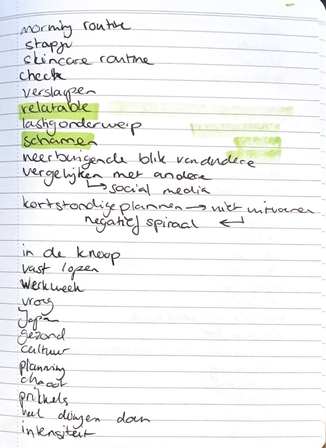 morning routine
stapje
skincare routine
check
verslapen
relatable
lastig onderwerp
schamen
neerbuigende blik van andere
vergelijken met andere
↳ social media
kortstondige plannen → niet uitvoeren
negatief spiraal ↵
in de knoop
vast lopen
werkweek
vroeg
Japan
gezond
cultuur
planning
chaoot
prikkels
veel dingen doen
intensiteit